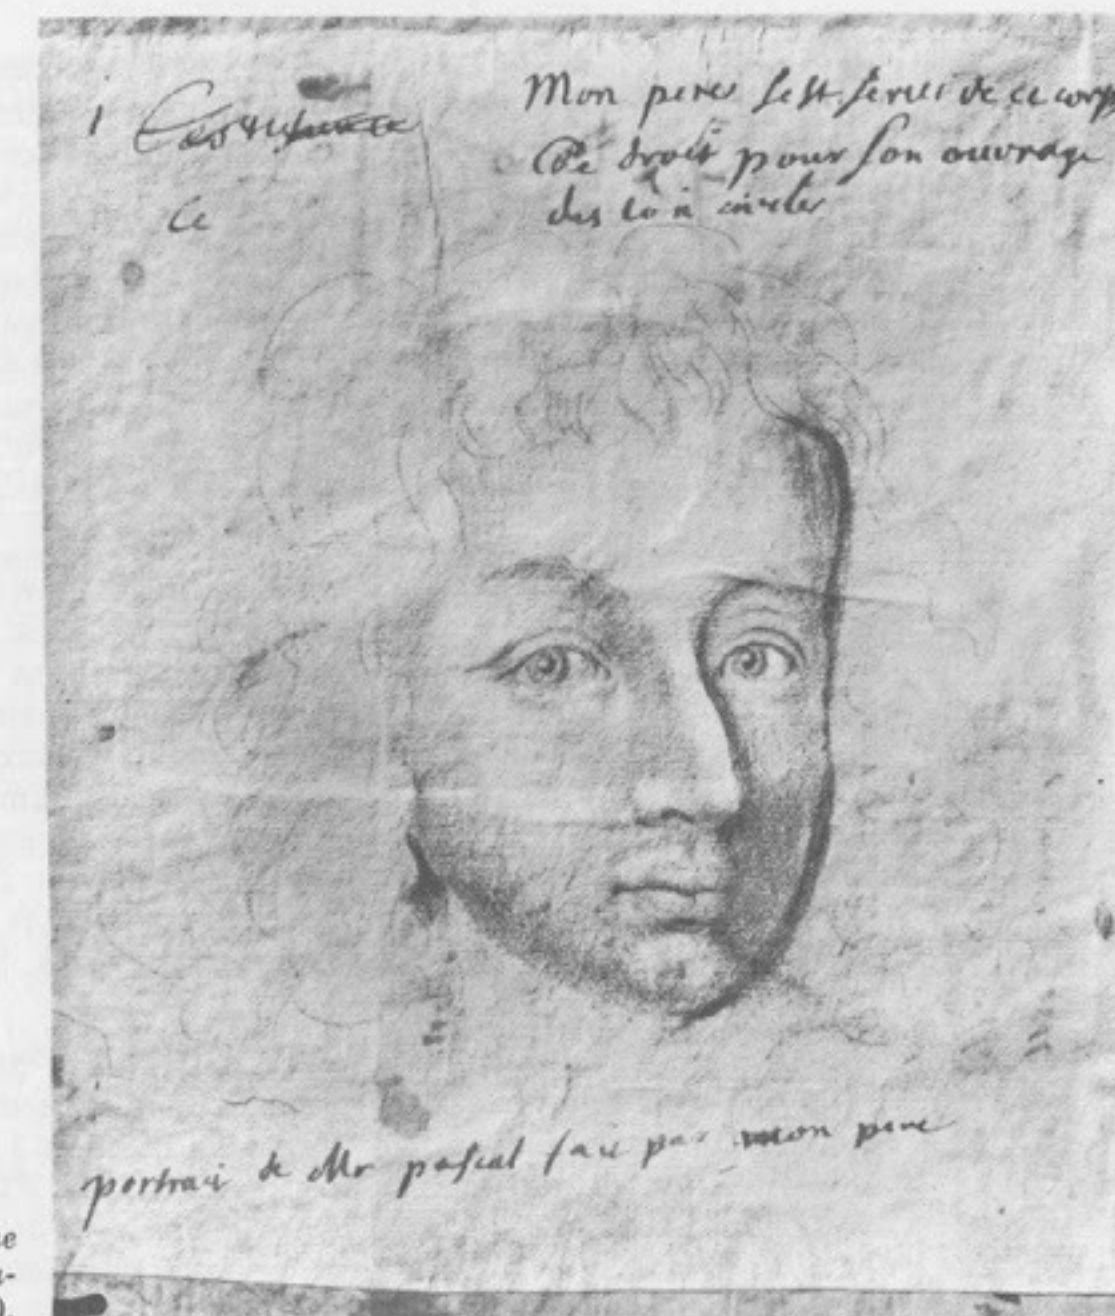 1
Mon pere s'est servi de ce corps
De droit pour son ouvrage
des loix civiles
Ce
portrait de Mr pascal fait par mon pere
e
a-
).